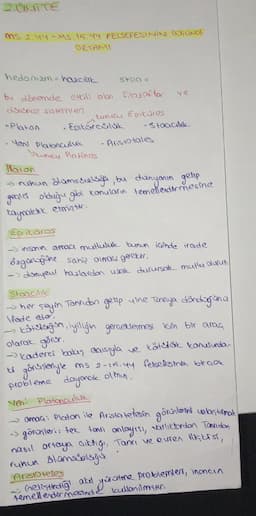 2. ÜNİTE
MS 2. yy - MS 15. yy FELSEFESİNİN DÜŞÜNCE
ORTAMI
hedonizm = hazcılık stoa =
bu dönemde etkili olan filozoflar ve
düşünce sistemleri
kurucu Epiküros
-Platon - Epikürosçuluk - Stoacılık
- Yeni Platonculuk - Aristoteles
kurucu Plotinos
Platon
→ ruhun ölümsüzlüğü, bu dünyanın gelip
geçici olduğu gibi konuların temellendirilmesine
kaynaklık etmiştir.
Epiküros
→ insanın amacı mutluluk bunun içinde irade
özgürlüğüne sahip olması gerekir.
→ dünyevi hazlardan uzak durursak mutlu oluruz.
Stoacılık
→ her şeyin Tanrıdan gelip yine Tanrıya döndüğünü
ifade eder.
→ kötülüğün, iyiliğin gerçekleşmesi için bir araç
olarak görür.
→ kaderci bakış açısıyla ve kötülük konusunda-
ki görüşleriyle MS 2-15. yy felsefesinin birçok
probleme dayanak olmuş.
Yeni Platonculuk
→ amacı: Platon ile Aristoteles'in görüşlerini uzlaştırmak
→ görüşleri: tek tanrı anlayışı, varlıkların Tanrıdan
nasıl ortaya çıktığı, Tanrı ve evren ilişkisi,
ruhun ölümsüzlüğü
Aristoteles
→ geliştirdiği akıl yürütme problemleri, inancın
temellendirmesinde kullanılmıştır.